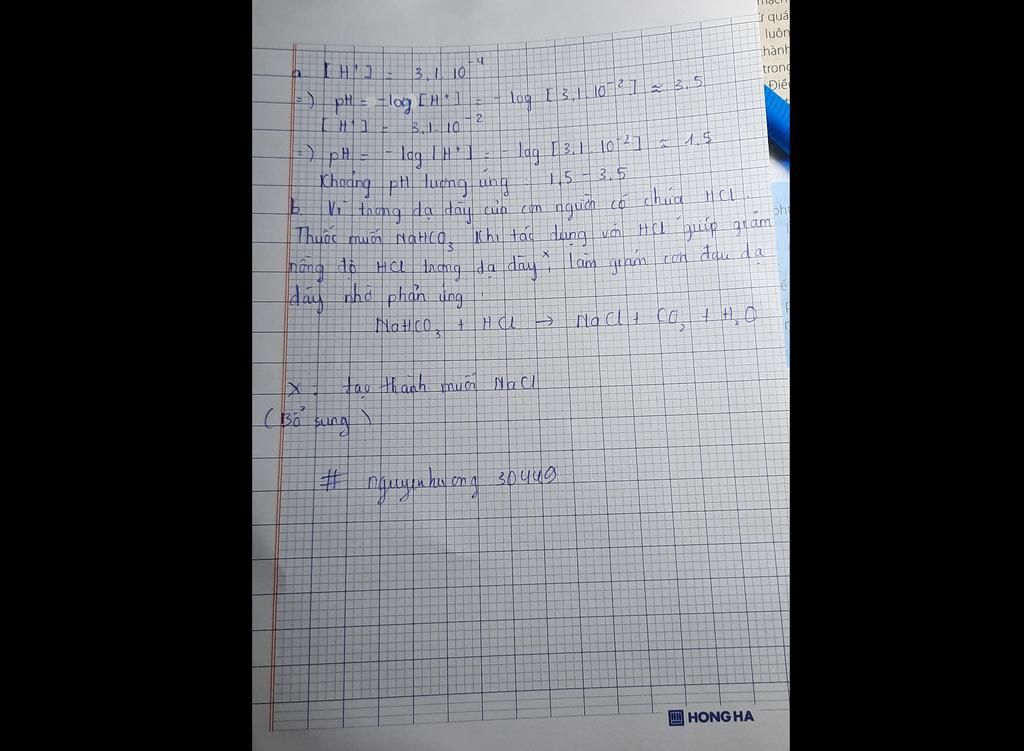 mạch
r quá
luôn
hành
trong
Điề
a. [H⁺] = 3,1.10⁻⁴
=) pH = -log [H⁺] = - log [3,1.10⁻²] ≈ 3,5
[H⁺] = 3,1.10⁻²
=) pH = - log [H⁺] = - log [3,1.10⁻²] ≈ 1,5
Khoảng pH tương ứng : 1,5 - 3,5
b. Vì trong dạ dày của con người có chứa HCl.
Thuốc muối NaHCO₃ khi tác dụng với HCl giúp giảm
nồng độ HCl trong dạ dày ˣ, làm giảm cơn đau dạ
dày nhờ phản ứng :
NaHCO₃ + HCl → NaCl + CO₂ + H₂O
X : tạo thành muối NaCl
(Bổ sung)
# nguyenhuong 30449
HONG HA